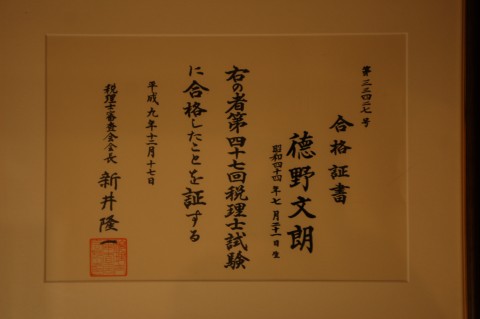 第二二四二七号
合格証書
徳野文朗
昭和四十四年七月二十一日生
右の者第四十七回税理士試験
に合格したことを証する
平成九年十二月十七日
税理士審査会会長 新井隆一